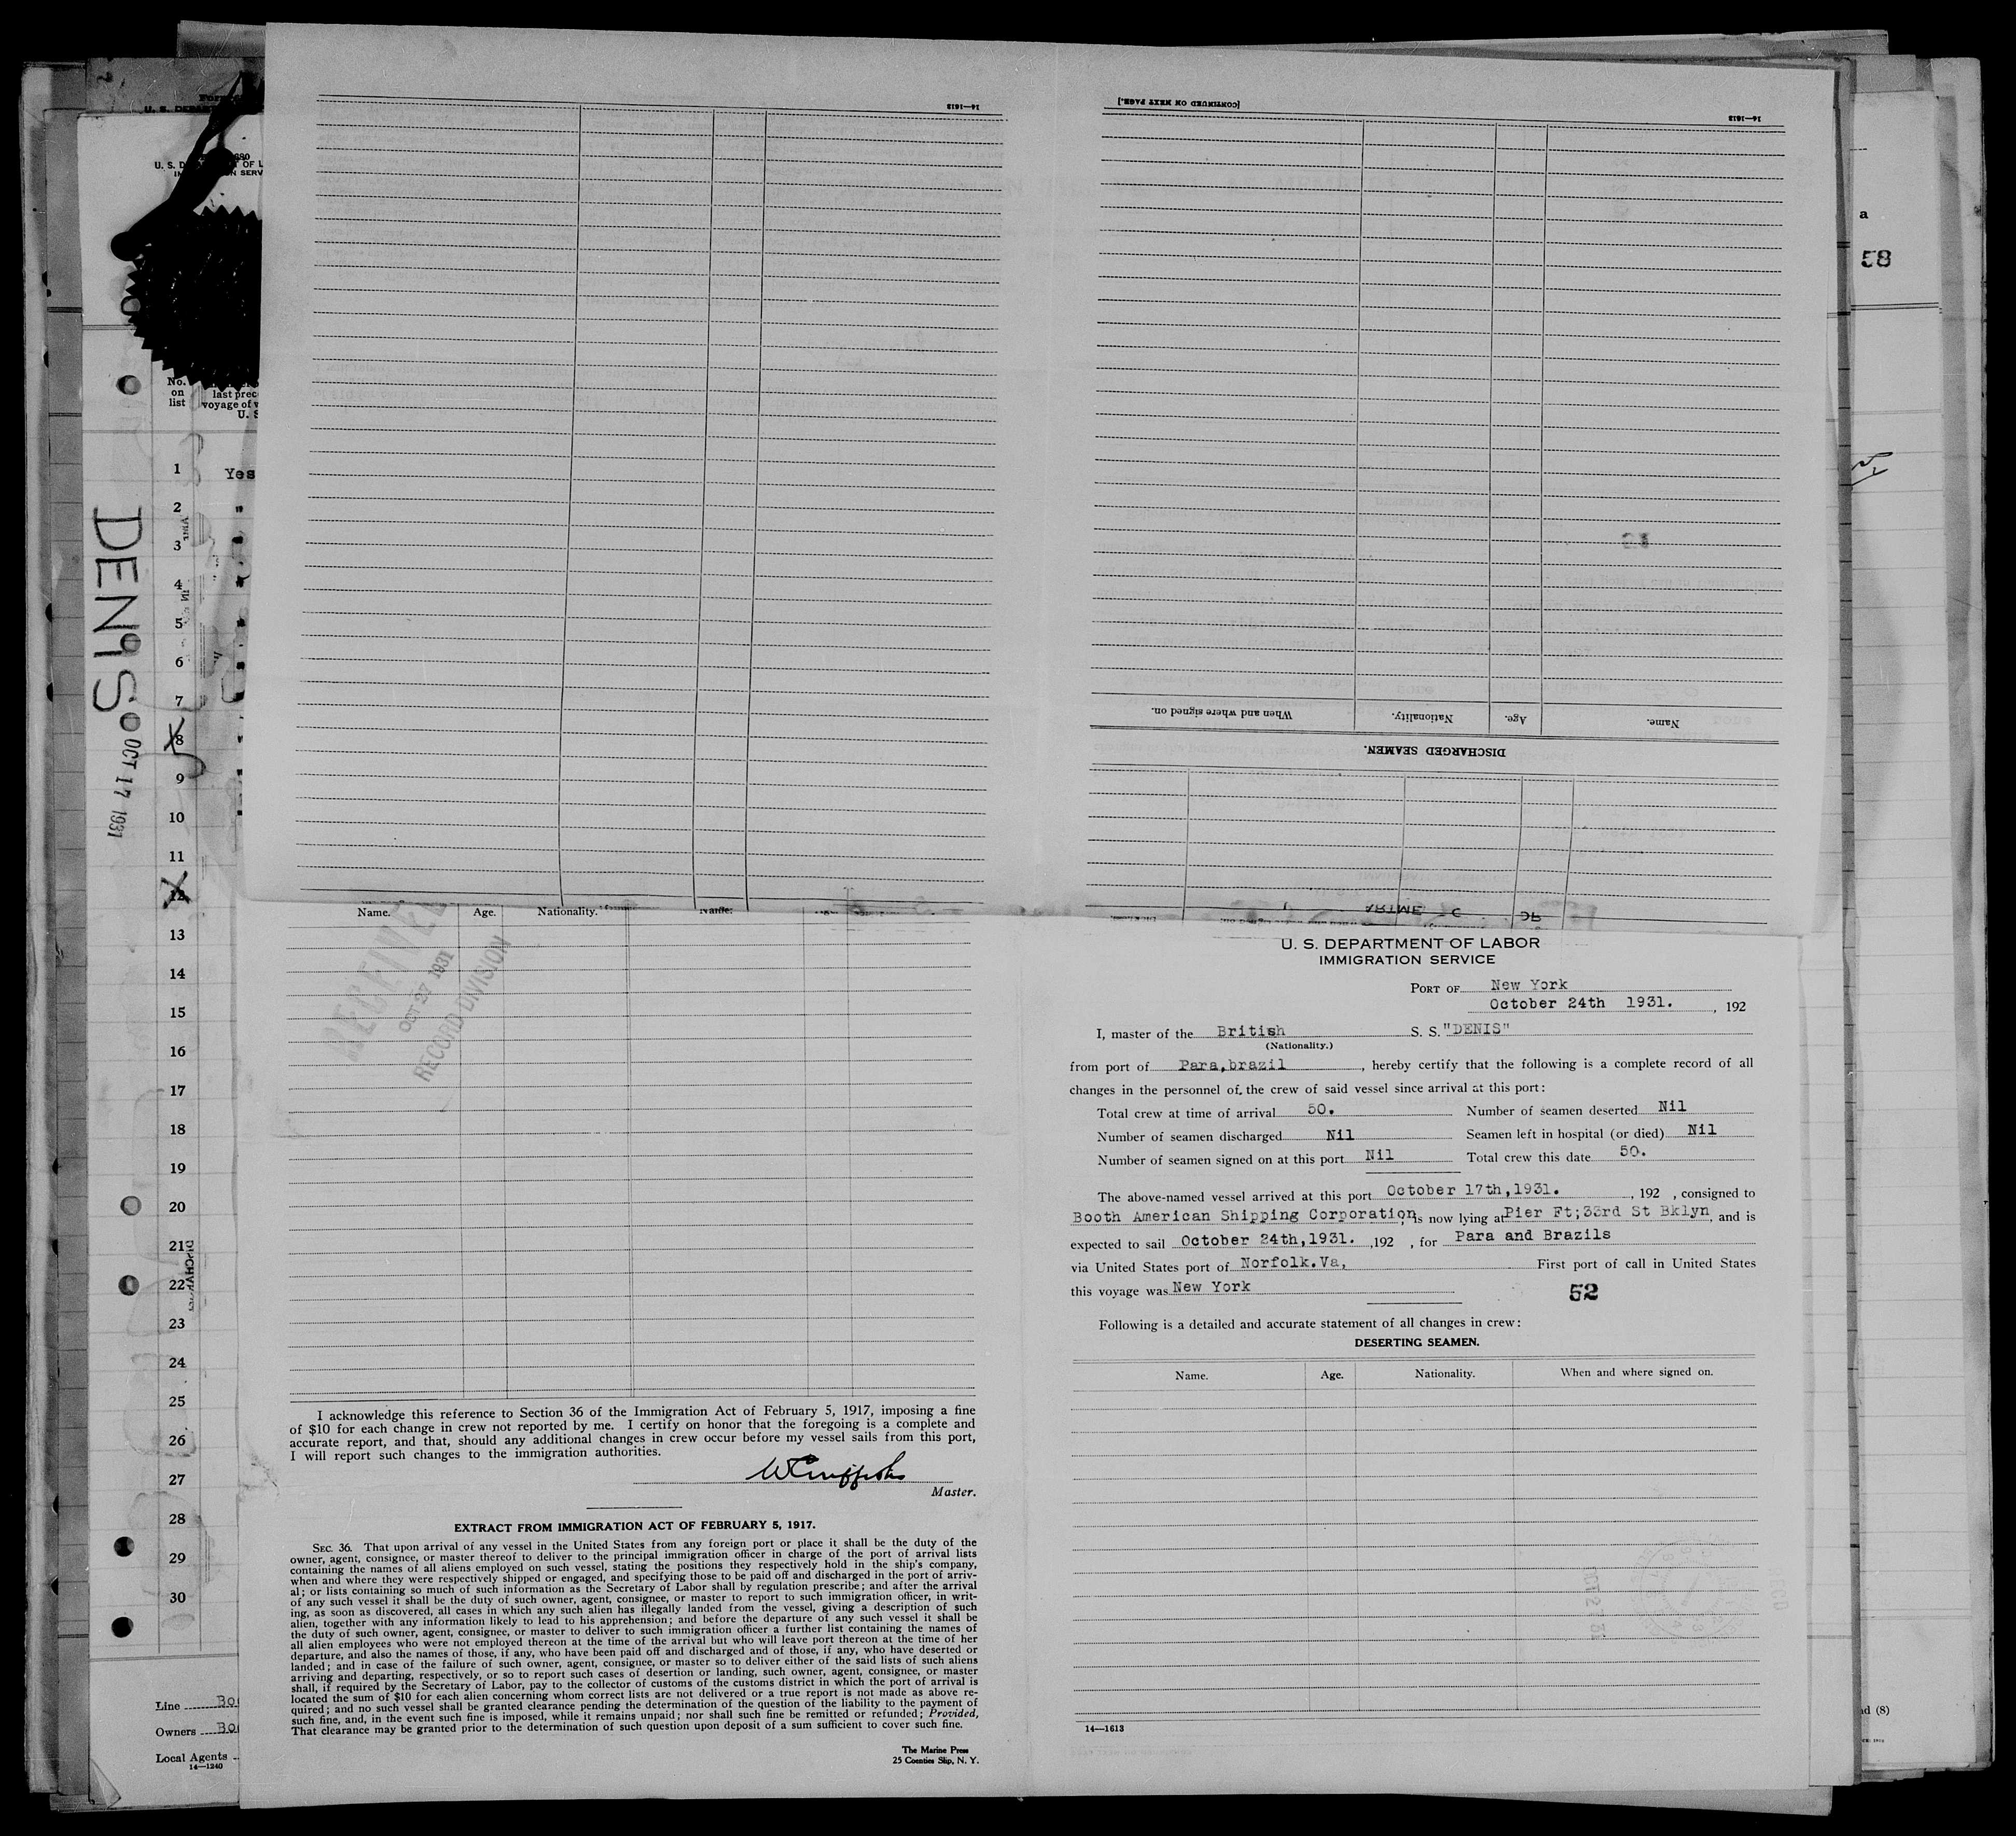 14—1613
[CONTINUED ON NEXT PAGE.]
14—1613
When and where signed on.
Nationality.
Age.
Name.
DISCHARGED SEAMEN.
a
58
U. S.
No.
on
list
last prec
voyage of v
U. S
1
Yes
2
3
4
5
6
7
8
9
10
11
12
13
14
15
16
17
18
19
20
21
22
23
24
25
26
27
28
29
30
DENIS
OCT 17 1931
Line
Owners
Local Agents
14—1240
Name. Age. Nationality.
RECEIVED
OCT 27 1931
RECORD DIVISION
I acknowledge this reference to Section 36 of the Immigration Act of February 5, 1917, imposing a fine
of $10 for each change in crew not reported by me. I certify on honor that the foregoing is a complete and
accurate report, and that, should any additional changes in crew occur before my vessel sails from this port,
I will report such changes to the immigration authorities.
Master.
EXTRACT FROM IMMIGRATION ACT OF FEBRUARY 5, 1917.
SEC. 36. That upon arrival of any vessel in the United States from any foreign port or place it shall be the duty of the
owner, agent, consignee, or master thereof to deliver to the principal immigration officer in charge of the port of arrival lists
containing the names of all aliens employed on such vessel, stating the positions they respectively hold in the ship's company,
when and where they were respectively shipped or engaged, and specifying those to be paid off and discharged in the port of arriv-
al; or lists containing so much of such information as the Secretary of Labor shall by regulation prescribe; and after the arrival
of any such vessel it shall be the duty of such owner, agent, consignee, or master to report to such immigration officer, in writ-
ing, as soon as discovered, all cases in which any such alien has illegally landed from the vessel, giving a description of such
alien, together with any information likely to lead to his apprehension; and before the departure of any such vessel it shall be
the duty of such owner, agent, consignee, or master to deliver to such immigration officer a further list containing the names of
all alien employees who were not employed thereon at the time of the arrival but who will leave port thereon at the time of her
departure, and also the names of those, if any, who have been paid off and discharged and of those, if any, who have deserted or
landed; and in case of the failure of such owner, agent, consignee, or master so to deliver either of the said lists of such aliens
arriving and departing, respectively, or so to report such cases of desertion or landing, such owner, agent, consignee, or master
shall, if required by the Secretary of Labor, pay to the collector of customs of the customs district in which the port of arrival is
located the sum of $10 for each alien concerning whom correct lists are not delivered or a true report is not made as above re-
quired; and no such vessel shall be granted clearance pending the determination of the question of the liability to the payment of
such fine, and, in the event such fine is imposed, while it remains unpaid; nor shall such fine be remitted or refunded; Provided,
That clearance may be granted prior to the determination of such question upon deposit of a sum sufficient to cover such fine.
The Marine Press
25 Coenties Slip, N. Y.
U. S. DEPARTMENT OF LABOR
IMMIGRATION SERVICE
PORT OF New York
October 24th 1931. , 192
I, master of the British S. S. "DENIS"
(Nationality.)
from port of Para,brazil , hereby certify that the following is a complete record of all
changes in the personnel of the crew of said vessel since arrival at this port:
Total crew at time of arrival 50. Number of seamen deserted Nil
Number of seamen discharged Nil Seamen left in hospital (or died) Nil
Number of seamen signed on at this port Nil Total crew this date 50.
The above-named vessel arrived at this port October 17th,1931. , 192 , consigned to
Booth American Shipping Corporation, is now lying at Pier Ft;33rd St Bklyn, and is
expected to sail October 24th,1931. ,192 , for Para and Brazils
via United States port of Norfolk.Va, First port of call in United States
this voyage was New York
52
Following is a detailed and accurate statement of all changes in crew:
DESERTING SEAMEN.
Name. Age. Nationality. When and where signed on.
14—1613
nd (8)